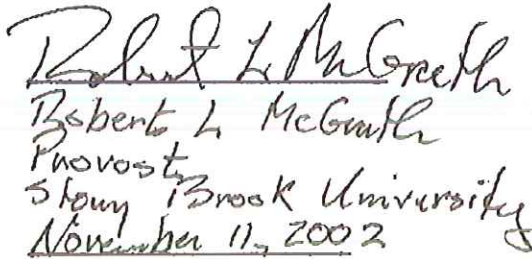 Robert L. McGrath
Robert L. McGrath
Provost
Stony Brook University
November 11, 2002